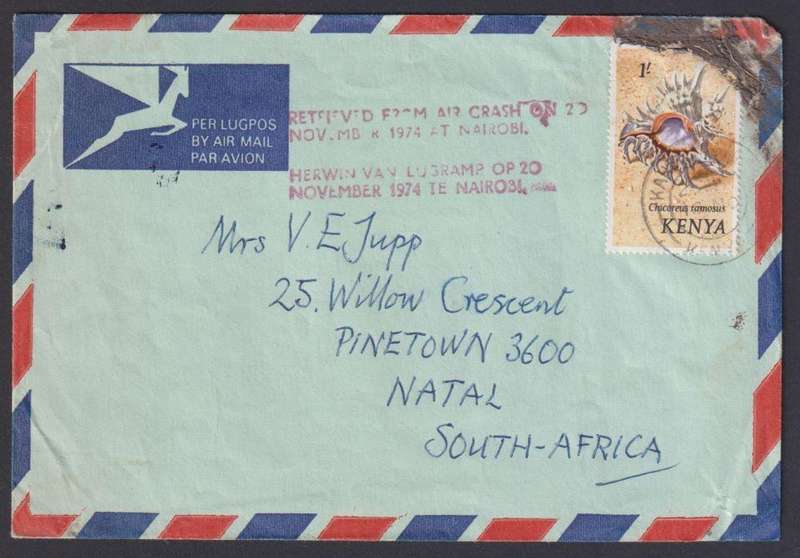 PER LUGPOS
BY AIR MAIL
PAR AVION
RETRIEVED FROM AIR CRASH ON 20
NOVEMBER 1974 AT NAIROBI.
HERWIN VAN LUGRAMP OP 20
NOVEMBER 1974 TE NAIROBI.
1/-
Chicoreus ramosus
KENYA
Mrs V. E Jupp
25. Willow Crescent
PINETOWN 3600
NATAL
SOUTH-AFRICA